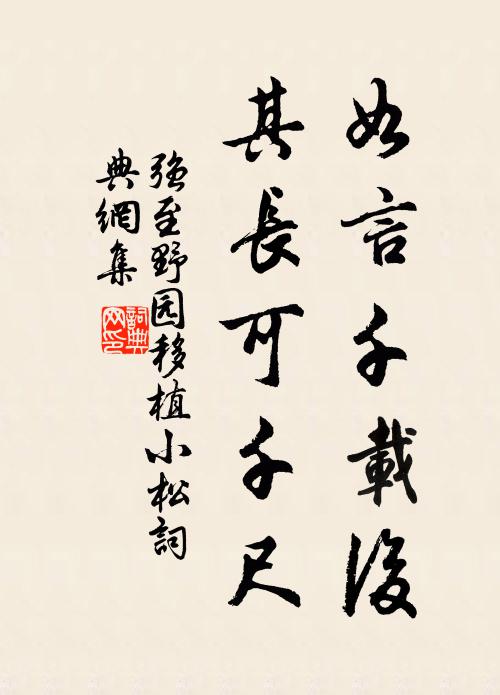 如言千載後
其長可千尺
強至野园移植小松詞
典網集
詞典网印